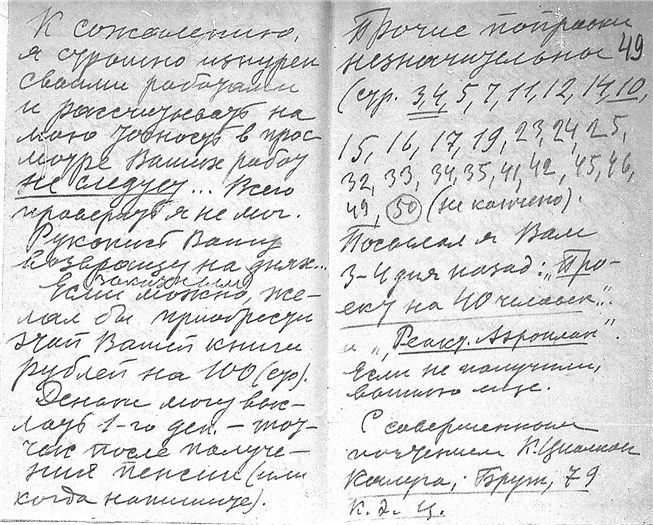 К сожалению,
я страшно изнурен
своими работами
и рассчитывать на
мою годность в прос-
мотре Ваших работ
не следует... Всего
проверить я не мог.
Рукопись Вашу
возвращу на днях...
заказным
Если можно, же-
лал бы приобрести
этой Вашей книги
рублей на 100 (ср).
Деньги могу выс-
лать 1-го дек. – тот-
час после получе-
ния пенсии (или
когда напишите).
Прочие поправки
незначительные 49
(стр. 3,4, 5, 7, 11, 12, 14, 10,
15, 16, 17, 19, 23, 24, 25,
32, 33, 34, 35, 41, 42, 45, 46,
49, 50 (не кончено).
Посылал я Вам
3-4 дня назад: „Про-
ект на 40 человек".
и „Реакт. Аэроплан".
Если не получили,
вышлю еще.
С совершенным
почтением К. Циолков
Калуга, Брут, 79
К. Э. Ц.